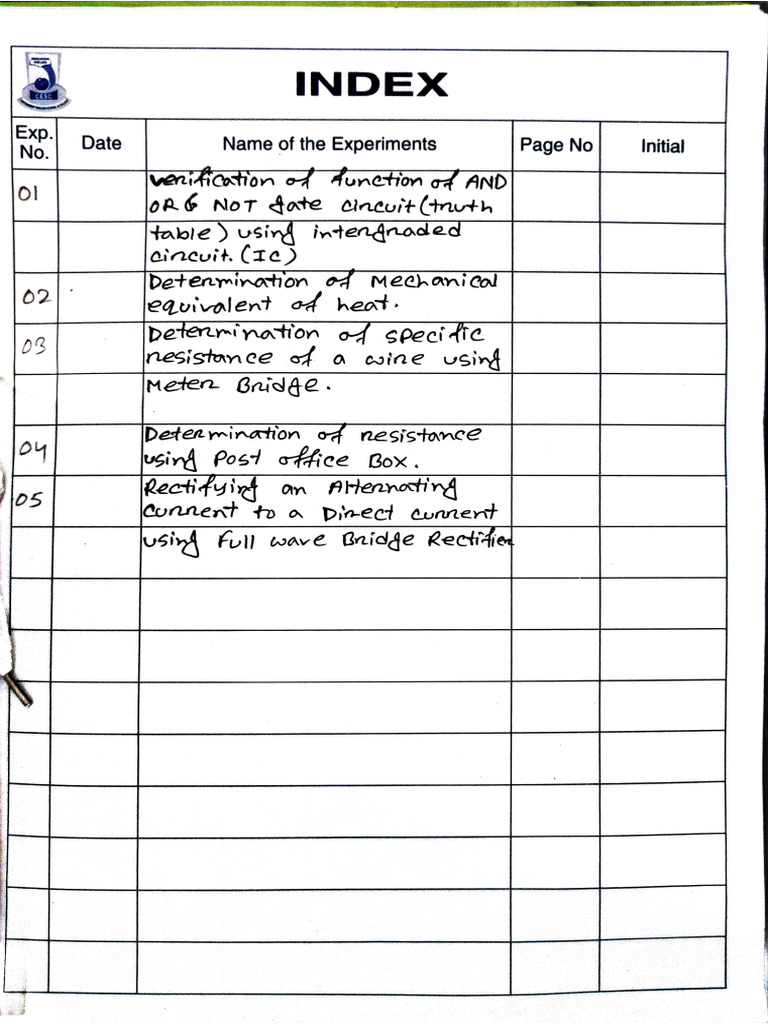 INDEX
Exp. No. Date Name of the Experiments Page No Initial
01 verification of function of AND
OR & NOT gate circuit (truth
table) using intergraded
circuit. (IC)
02 Determination of Mechanical
equivalent of heat.
03 Determination of specific
resistance of a wire using
Meter Bridge.
04 Determination of resistance
using Post office Box.
05 Rectifying an Alternating
current to a Direct current
using Full wave Bridge Rectifier